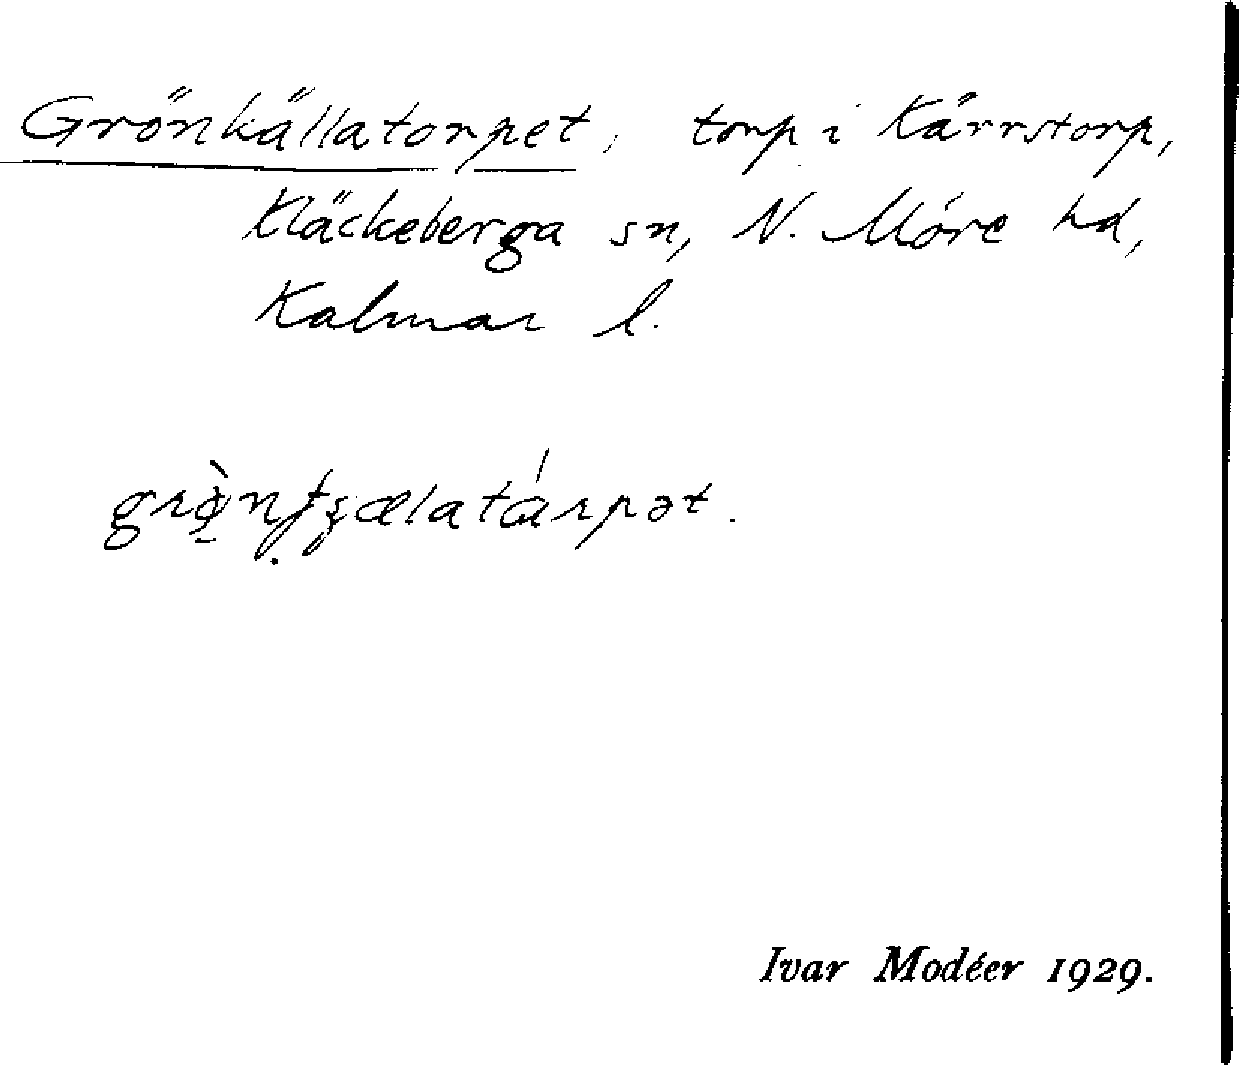 Grönkällatorpet, torp i Kärrstorp,
Kläckeberga sn, N. Möre hd,
Kalmar l.
Ivar Modéer 1929.